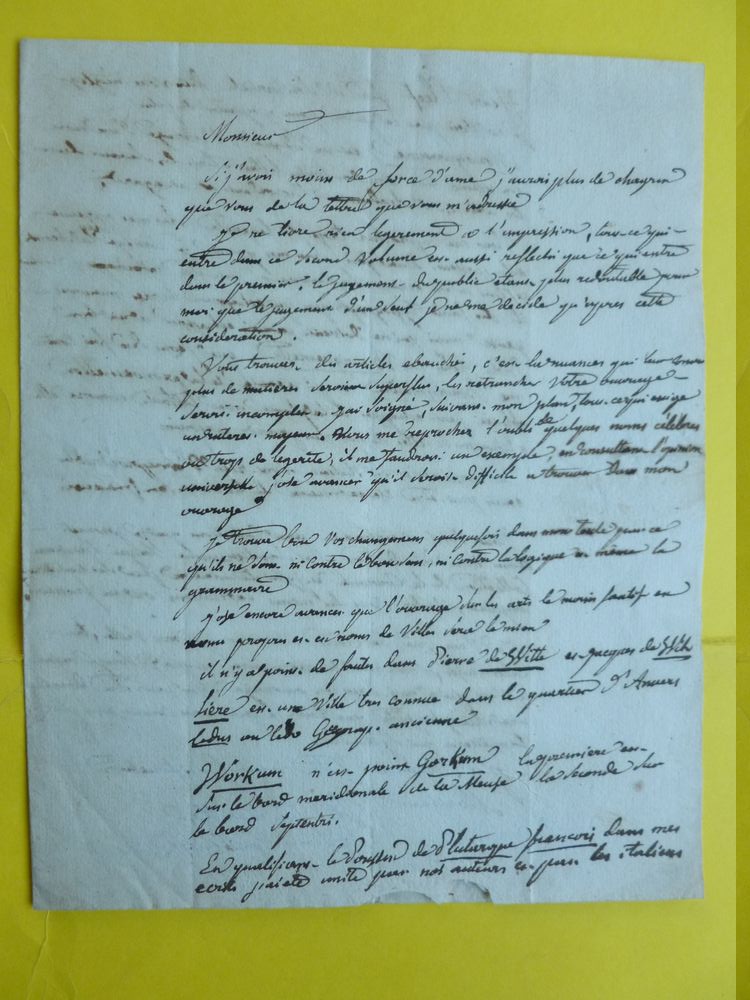 Monsieur
Si j'avois moins de force d'ame j'aurois plus de chagrin
que vous de la lettre que vous m'adressé
je ne livre rien legerement a l'impression, tous ce qui
entre dans ce second volume est aussi reflechi que ce qui entre
dans le premier. le jugement du public etant plus redoutable pour
moi que le jugement d'un seul je ne me decide qu'apres cette
consideration.
Vous trouvez des articles ebauché, c'est la nuances qui leur
plus de matières seroient superflus, les retrancher Votre ouvrage
seroit incomplet. j'ai soigné, suivant mon plan, tous ce qui exige
un interet moyent. Vous me reprochez l'oubli de quelques noms célébres
ou trops de legereté, il me faudroit un exemple, en consultant l'opinion
universelle j'ose avancer qu'il seroit difficile a trouver dans mon
ouvrage
je trouve bon vos changemens quelquefois dans mon texte pour ce
qu'ils ne sont ni contre le bon sens, ni contre la logique et même la
grammaire
j'ose encore avancer que l'ouvrage sur les arts le moins fautif en
noms propres et en noms de Villes sera le mien
il n'y a point de fautes dans Pierre de Witte et Jacques de Wit
Liere est une Ville tres connue dans le quartier d'Anvers
Ledus ou Ledo Geograp. ancienne
Workum n'est point Gorkum la premiere est
sur le bord meridionale de la Meuse la seconde sur
le bord septentri.
En qualifiant le Poussin de Plutarque françois dans mes
ecrits j'ai eté imité par nos auteurs et par les italiens